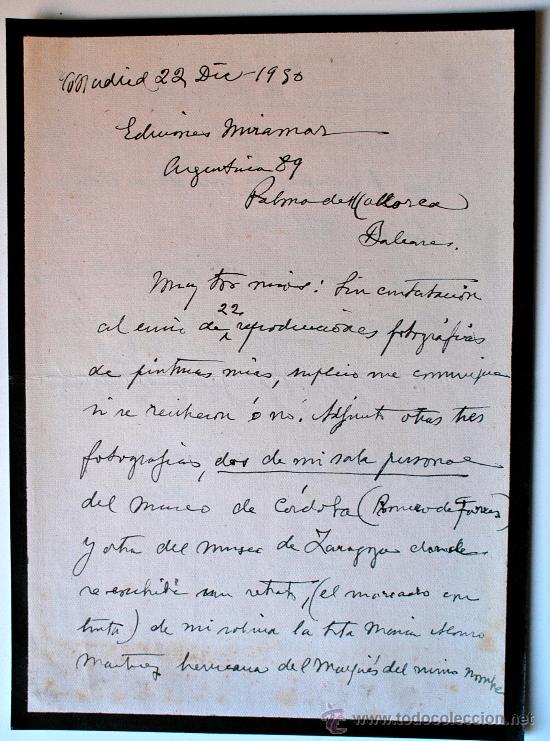 Madrid 22 Dic - 1930
Ediciones Miramar
Argentina 89
Palma de Mallorca
Baleares.
Muy Sres mios: Sin contestación
al envio de 22 reproducciones fotográficas
de pinturas mias, suplico me comuniquen
si se recibieron ó nó. Adjunto otras tres
fotografias, dos de mi sala personal
del Museo de Córdoba (Romero de Torres)
y otra del museo de Zaragoza donde
se exhibe un retrato, (el marcado con
tinta) de mi sobrina la Srta Maria Alonso
Martinez hermana del Marqués del mismo nombre
todocoleccion
www.todocoleccion.net